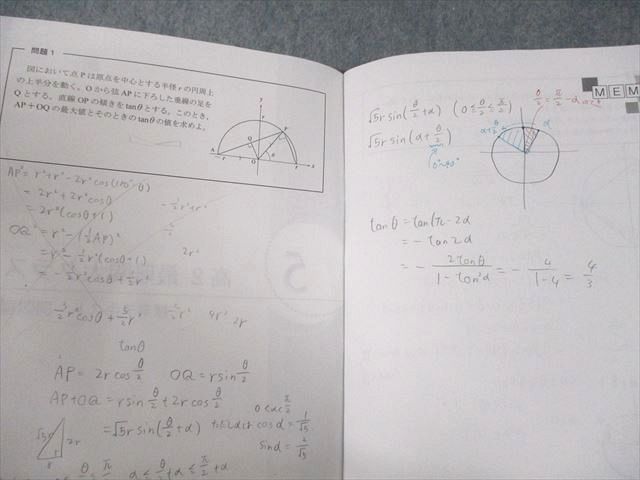 問題1
図において点Pは原点を中心とする半径rの円周上
の上半分を動く。Oから弦APに下ろした垂線の足を
Qとする。直線OPの傾きをtanθとする。このとき、
AP+OQの最大値とそのときのtanθの値を求めよ。
AP²= r²+r²-2r²cos(180°-θ)
= 2r²+2r²cosθ
= 2r²(cosθ+1)
OQ²= r²-(½AP)²
= r²-½r²(cosθ+1)
= -½r²cosθ+½r²
2r²
tanθ
AP = 2r cos θ/2 OQ = r sin θ/2
AP+OQ = r sin θ/2 + 2r cos θ/2
= √5 r sin(θ/2+α) ただしαは cosα = 1/√5
sinα = 2/√5
0<α<π/2
√5r 2r
r
α ≤ θ/2+α ≤ π/2+α
MEM
√5r sin(θ/2+α) (0≤θ/2≤π/2)
√5r sin(α+θ/2)
0°~90°
θ/2 = π/2-α
α
tanθ = tan(π-2α)
= -tan2α
= - 2tanα/1-tan²α = - 4/1-4 = 4/3